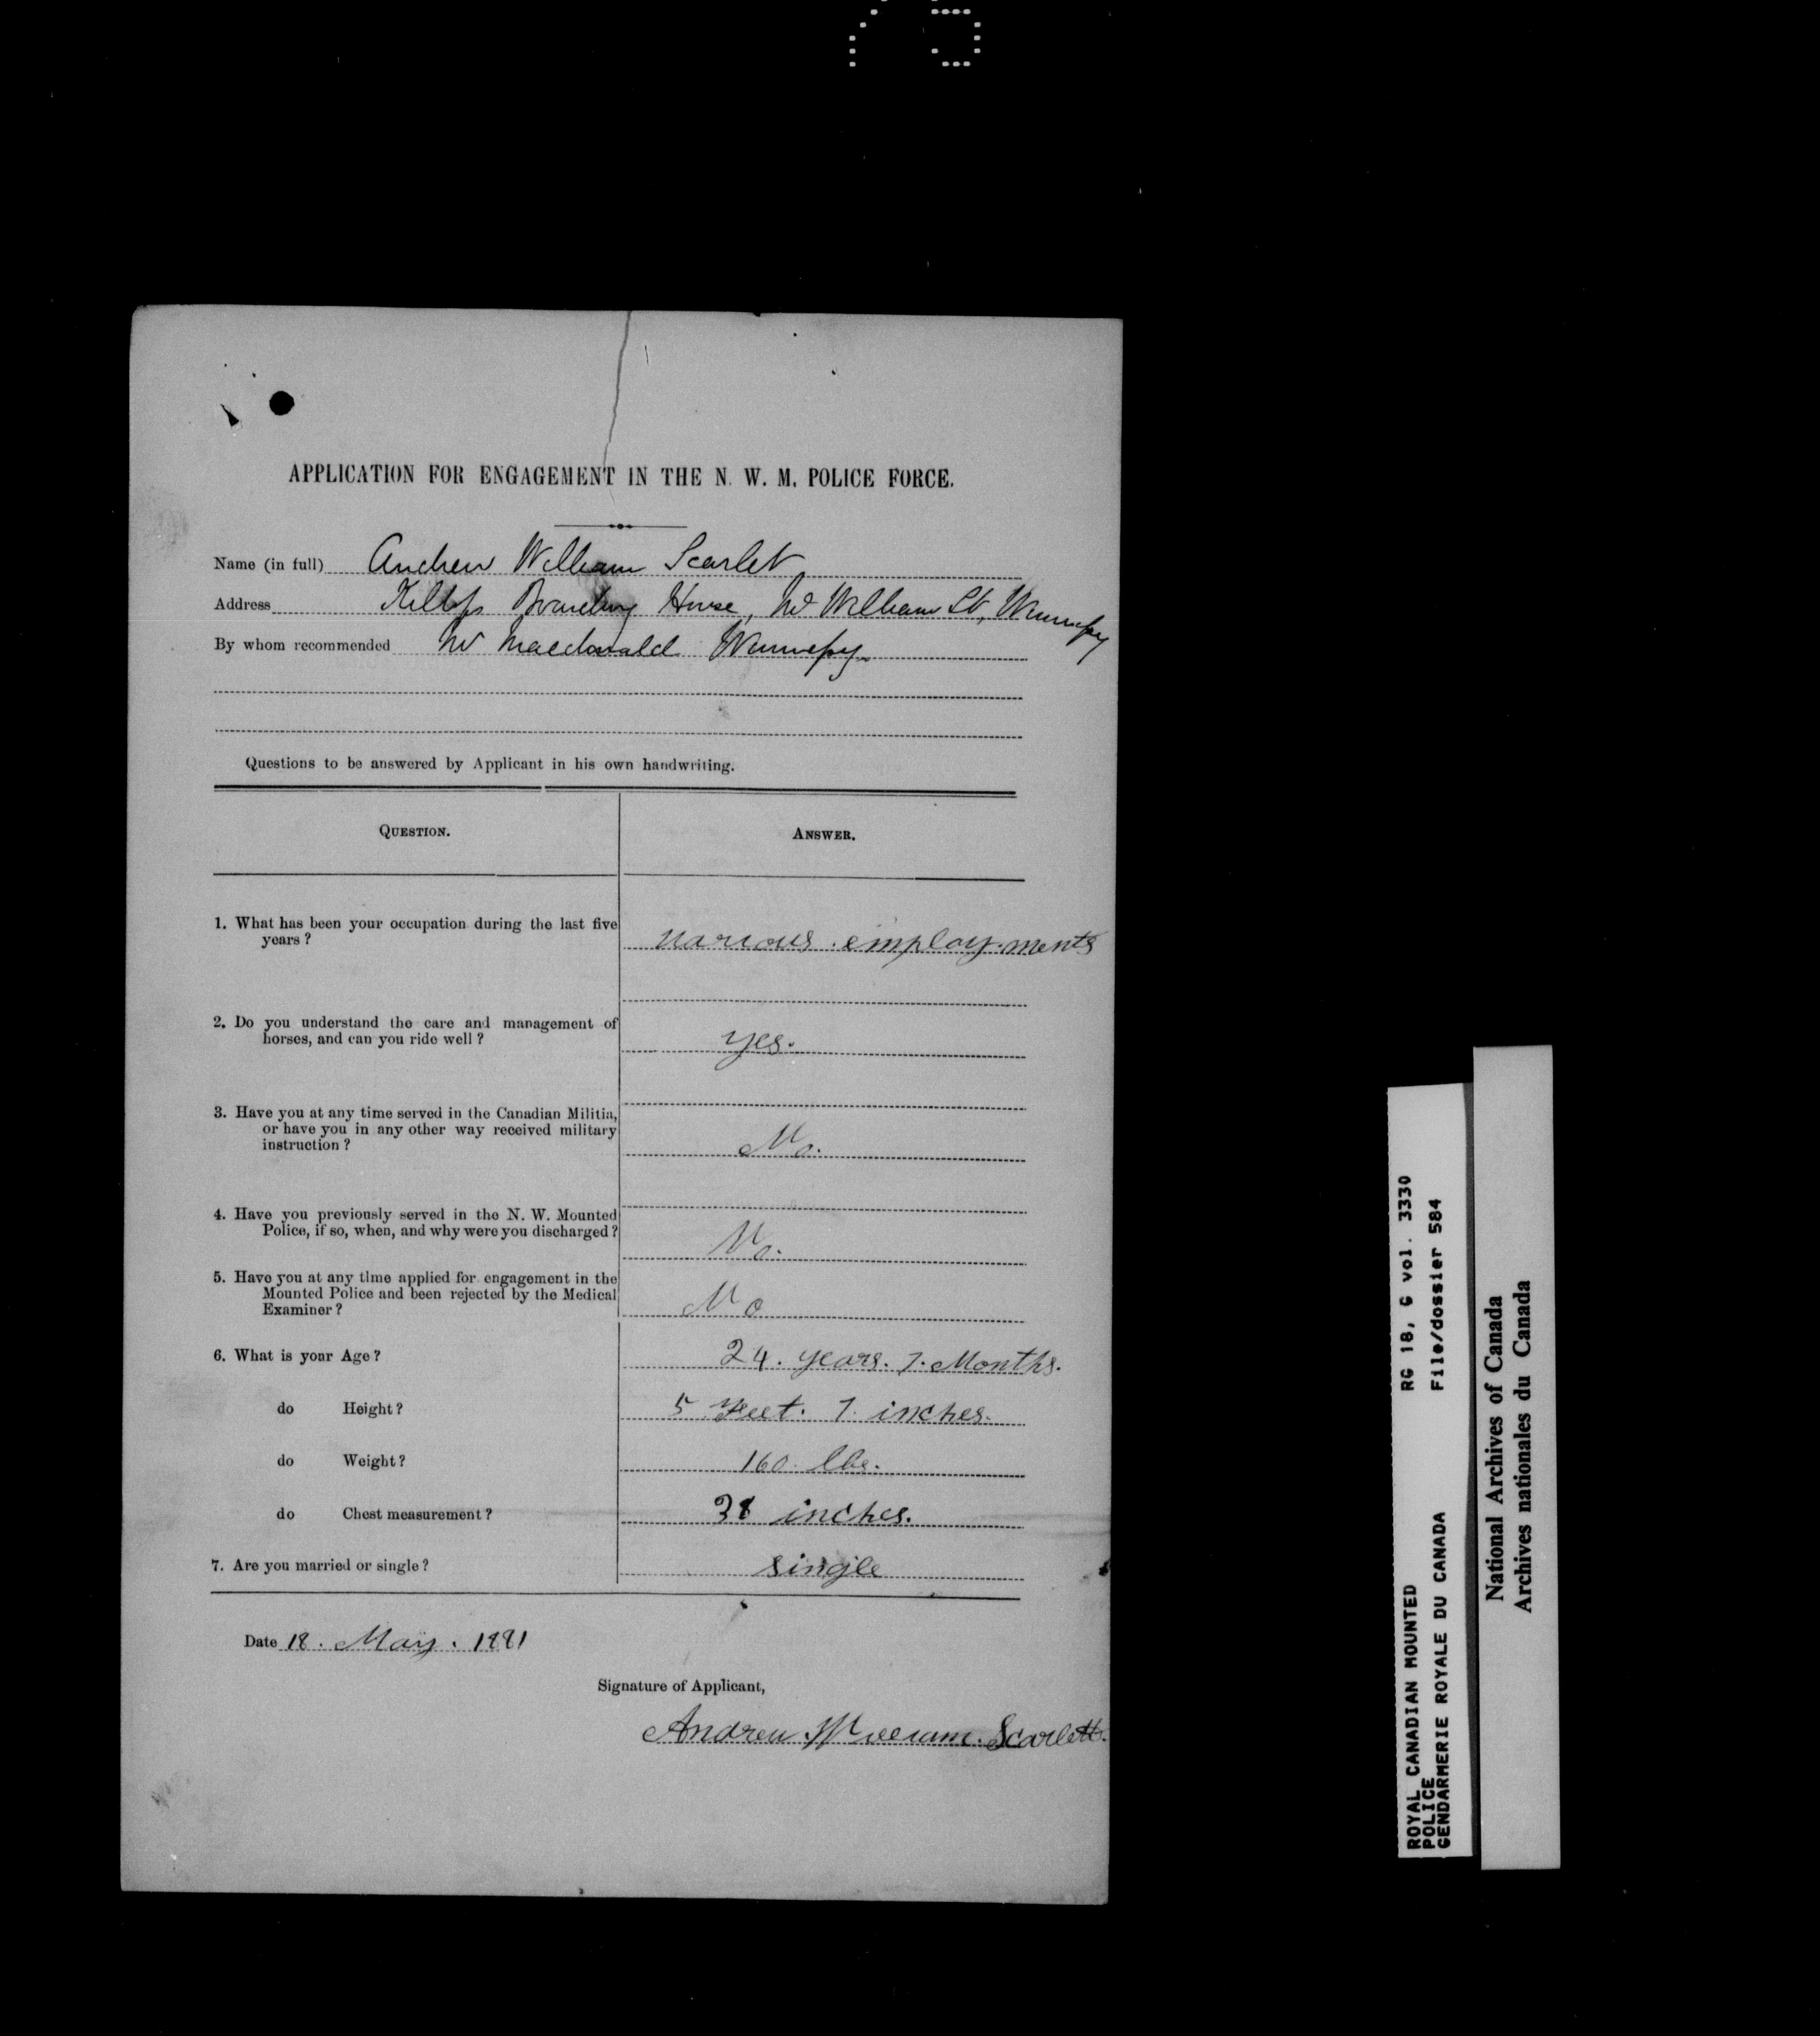 APPLICATION FOR ENGAGEMENT IN THE N. W. M. POLICE FORCE.
Name (in full) Andrew William Scarlet
Address Boarding House, William St, Winnipeg
By whom recommended Mr Macdonald Winnipeg
Questions to be answered by Applicant in his own handwriting.
QUESTION. ANSWER.
1. What has been your occupation during the last five
years? various employments
2. Do you understand the care and management of
horses, and can you ride well? yes.
3. Have you at any time served in the Canadian Militia,
or have you in any other way received military
instruction? No.
4. Have you previously served in the N. W. Mounted
Police, if so, when, and why were you discharged? No.
5. Have you at any time applied for engagement in the
Mounted Police and been rejected by the Medical
Examiner? No
6. What is your Age? 24. years. 7. Months.
do Height? 5 Feet. 7. inches.
do Weight? 160. lbs.
do Chest measurement? 38 inches.
7. Are you married or single? single
Date 18. May. 1881
Signature of Applicant,
Andrew. William. Scarlett.
ROYAL CANADIAN MOUNTED RG 18, G vol. 3330
POLICE File/dossier 584
GENDARMERIE ROYALE DU CANADA
National Archives of Canada
Archives nationales du Canada